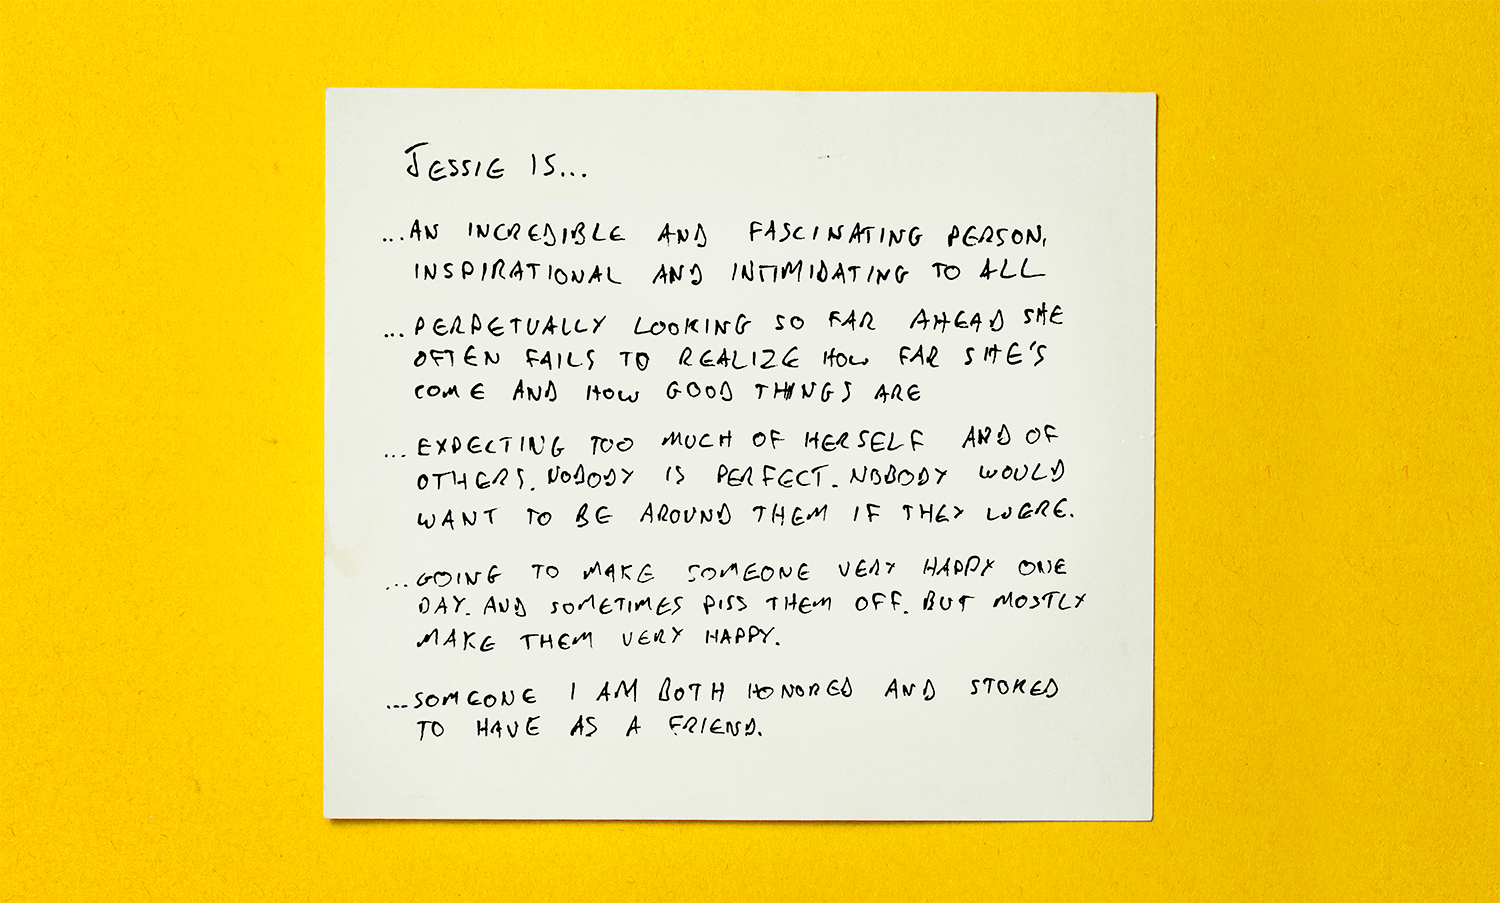 JESSIE IS...
...AN INCREDIBLE AND FASCINATING PERSON,
INSPIRATIONAL AND INTIMIDATING TO ALL
...PERPETUALLY LOOKING SO FAR AHEAD SHE
OFTEN FAILS TO REALIZE HOW FAR SHE'S
COME AND HOW GOOD THINGS ARE
...EXPECTING TOO MUCH OF HERSELF AND OF
OTHERS. NOBODY IS PERFECT. NOBODY WOULD
WANT TO BE AROUND THEM IF THEY WERE.
...GOING TO MAKE SOMEONE VERY HAPPY ONE
DAY. AND SOMETIMES PISS THEM OFF. BUT MOSTLY
MAKE THEM VERY HAPPY.
...SOMEONE I AM BOTH HONORED AND STOKED
TO HAVE AS A FRIEND.